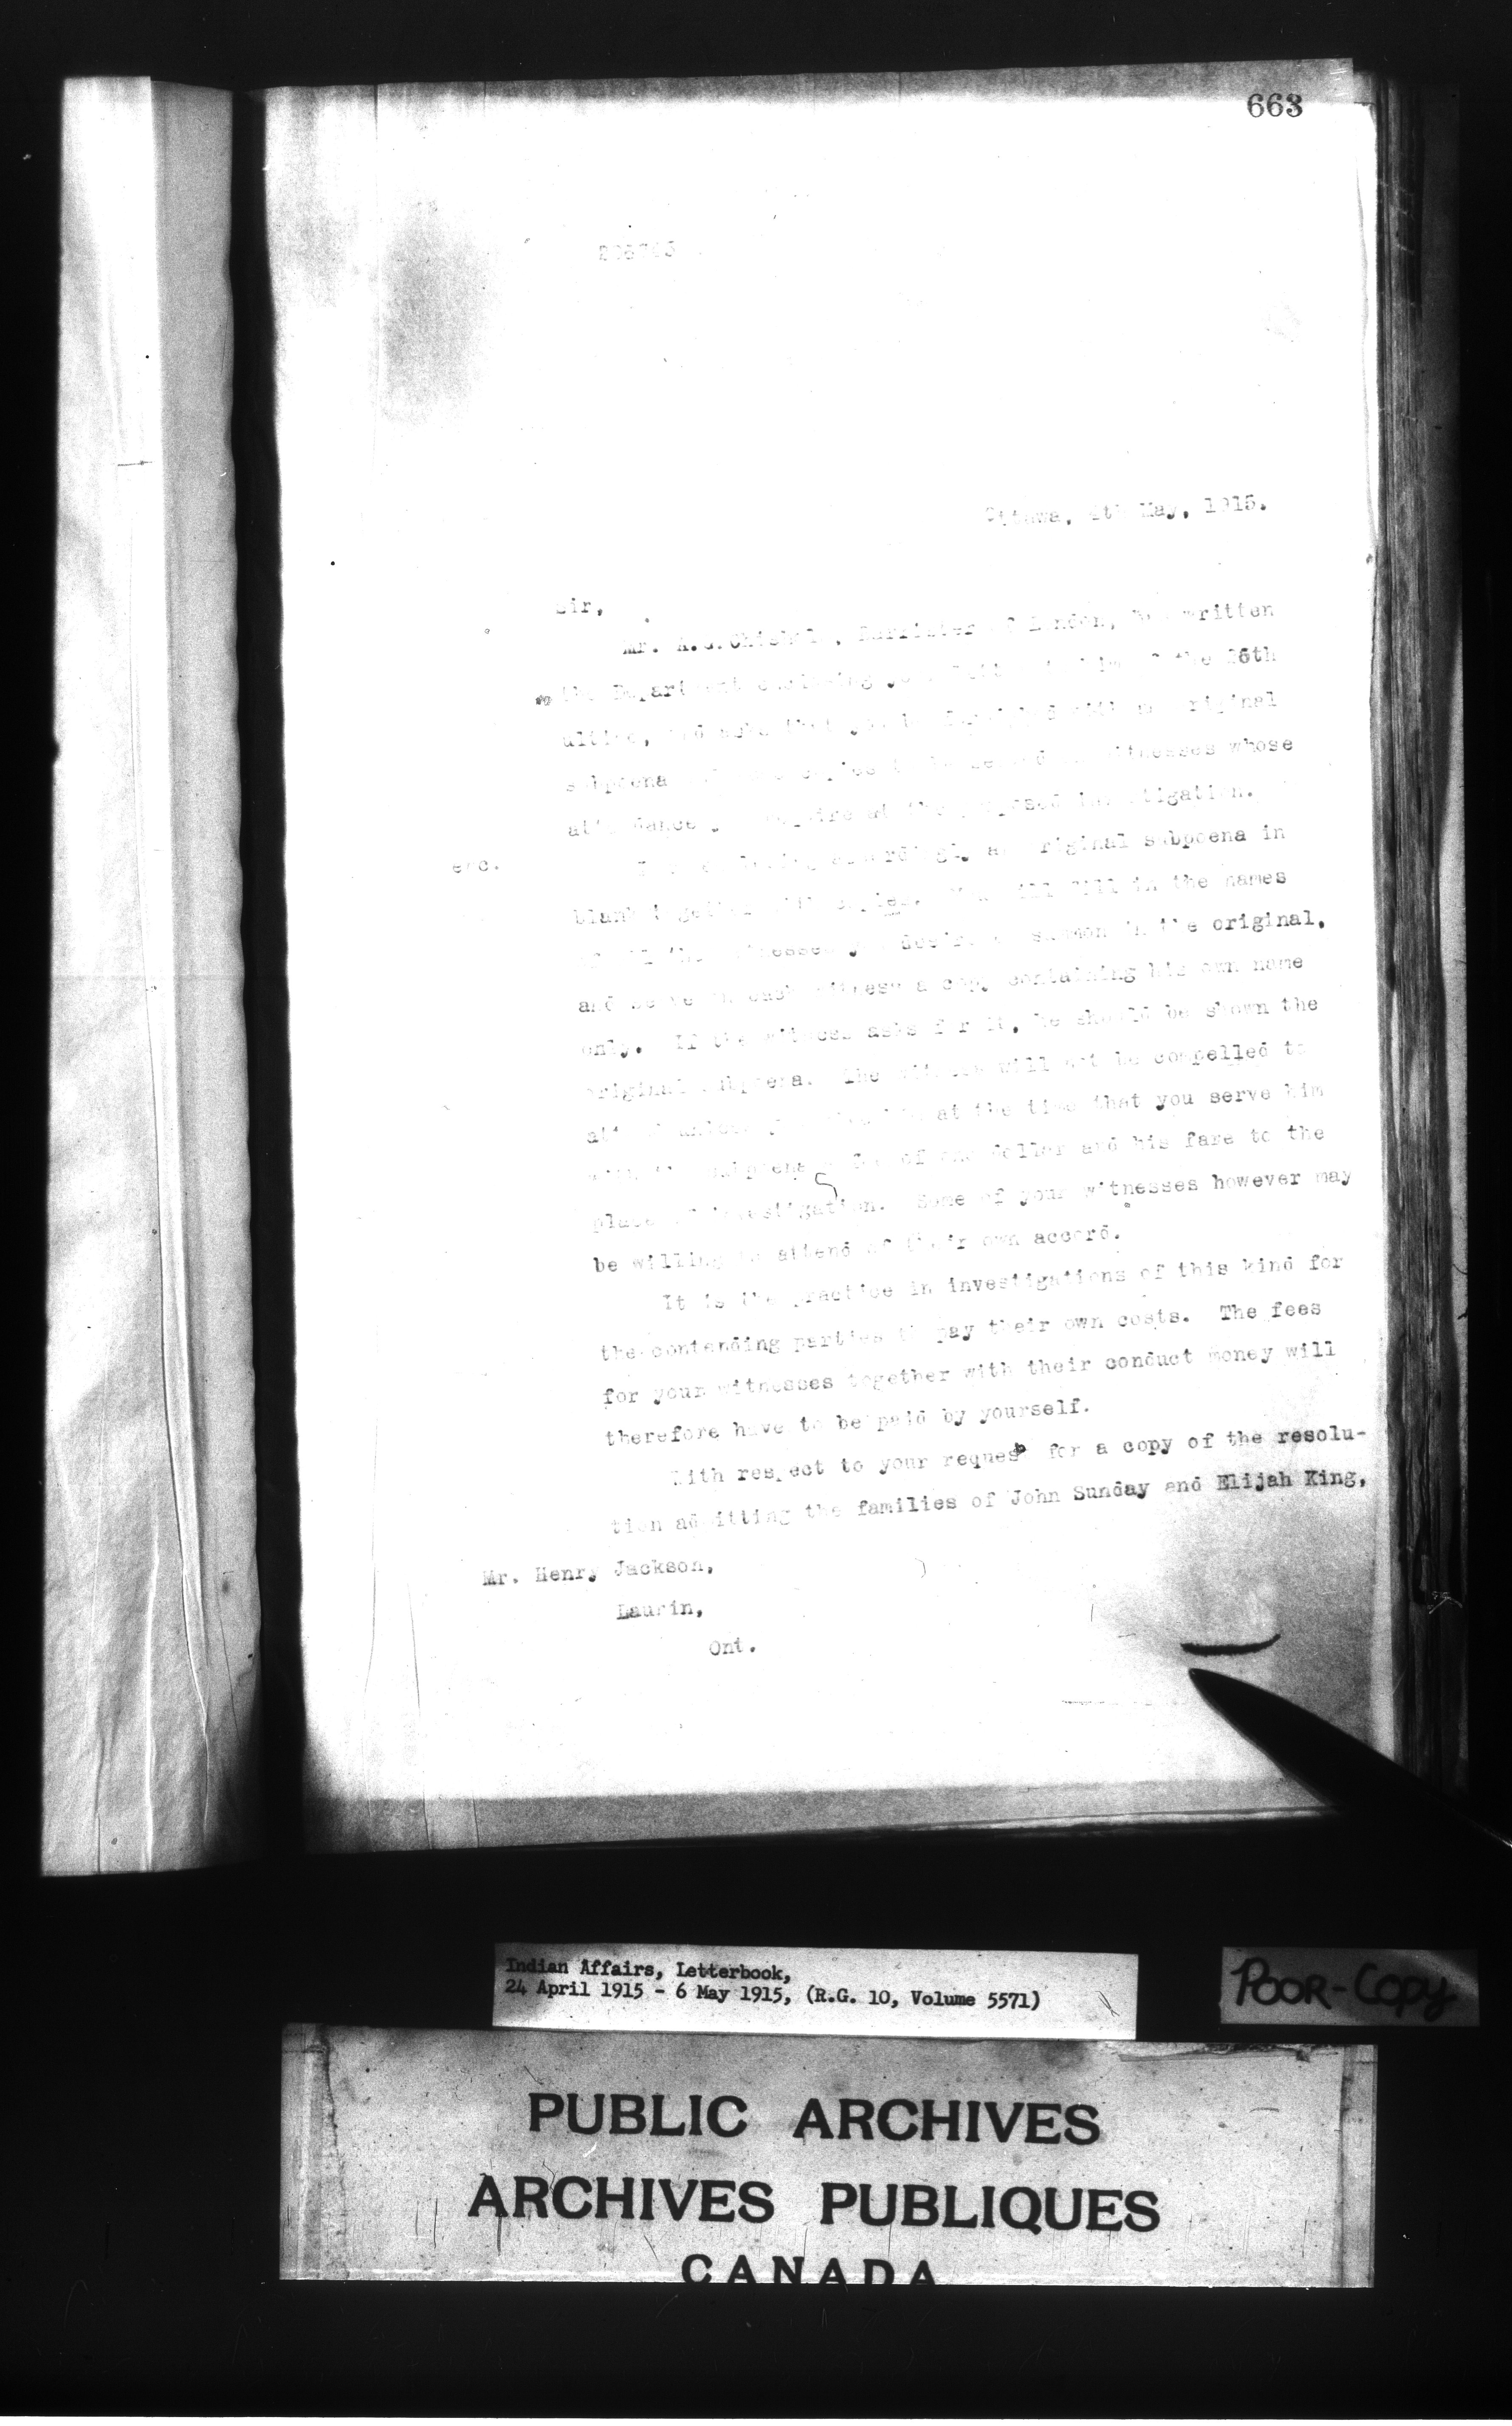 663
Ottawa, 4th May, 1915.
Sir,
Mr. A.G. Chisholm, Barrister of London, has written
the Department enclosing your letter to him of the 26th
ultimo, and asks that you be furnished with an original
subpoena witnesses whose
attendance you require at the proposed investigation.
enc.
I am enclosing accordingly an original subpoena in
blank together with copies. You will fill in the names
of all the witnesses you desire to summon in the original,
and serve on each witness a copy containing his own name
only. If the witness asks for it, he should be shown the
original subpoena. The witness will not be compelled to
attend unless you at the time that you serve him
with the subpoena a fee of one dollar and his fare to the
place of investigation. Some of your witnesses however may
be willing to attend of their own accord.
It is the practice in investigations of this kind for
the contending parties to pay their own costs. The fees
for your witnesses together with their conduct money will
therefore have to be paid by yourself.
With respect to your request for a copy of the resolu-
tion admitting the families of John Sunday and Elijah King,
Mr. Henry Jackson,
Laurin,
Ont.
Indian Affairs, Letterbook,
24 April 1915 - 6 May 1915, (R.G. 10, Volume 5571)
POOR-COPY
PUBLIC ARCHIVES
ARCHIVES PUBLIQUES
CANADA